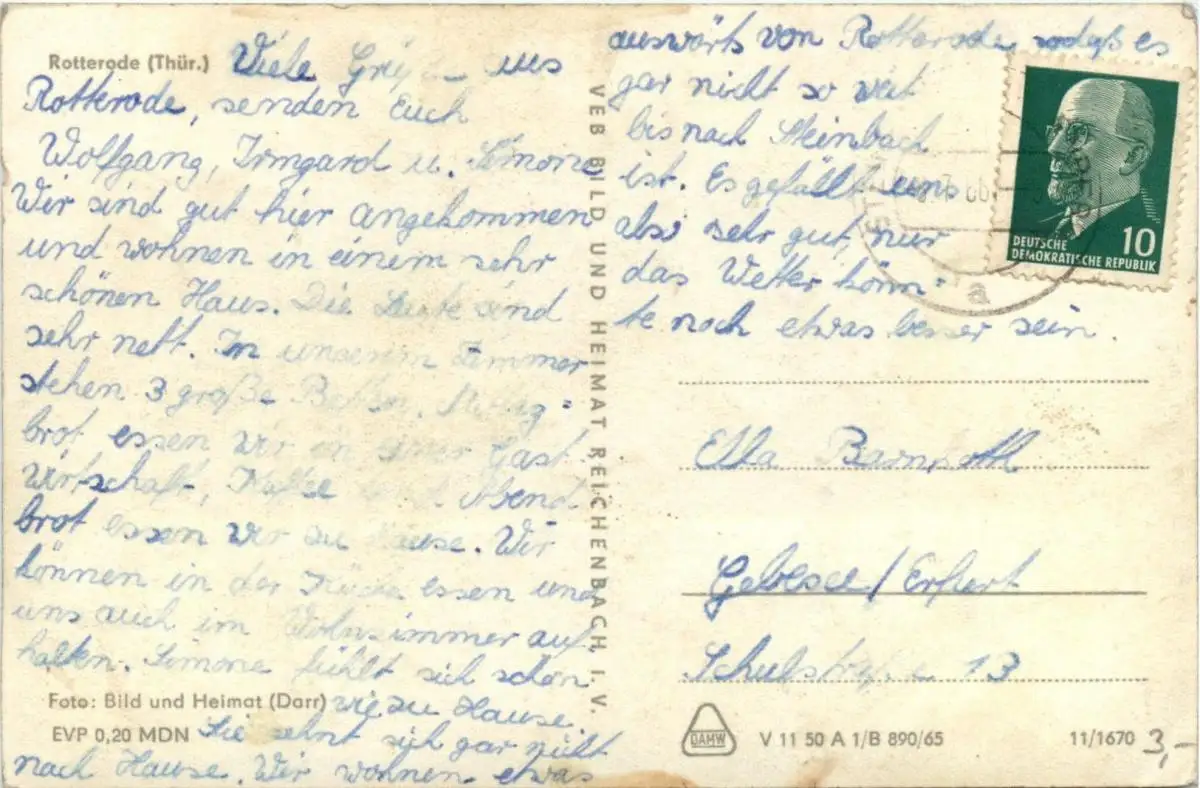 Rotterode (Thür.) Viele Grüße aus
Rotterode, senden Euch
Wolfgang, Irmgard u. Simone
Wir sind gut hier angekommen
und wohnen in einem sehr
schönen Haus. Die Leute sind
sehr nett. In unserem Zimmer
stehen 3 große Betten. Mittag-
brot essen wir in einer Gast
wirtschaft, Kaffee und Abend
brot essen wir zu Hause. Wir
können in der Küche essen und
uns auch im Wohnzimmer auf
halten. Simone fühlt sich schon
Foto: Bild und Heimat (Darr) wie zu Hause.
EVP 0,20 MDN Sie sehnt sich gar nicht
nach Hause. Wir wohnen etwas
VEB BILD UND HEIMAT REICHENBACH I. V.
auswärts von Rotterode, sodaß es
gar nicht so weit
bis nach Steinbach
ist. Es gefällt uns
also sehr gut, nur
das Wetter könn-
te noch etwas besser sein.
DEUTSCHE
DEMOKRATISCHE REPUBLIK 10
a
Ella
Gebesee/Erfurt
Schulstraße 13
DAMW V 11 50 A 1/B 890/65 11/1670 3,-